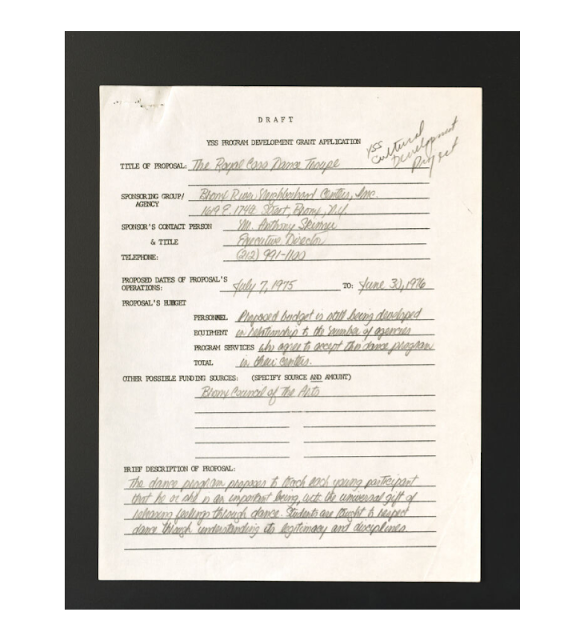 DRAFT
YSS PROGRAM DEVELOPMENT GRANT APPLICATION
YSS
Cultural
Development
Project
TITLE OF PROPOSAL: The Royal Dance Troupe
SPONSORING GROUP/ Bronx River Neighborhood Center, Inc.
AGENCY 1619 E. 174th Street, Bronx, N.Y.
SPONSOR'S CONTACT PERSON Mr. Anthony
& TITLE Executive Director
TELEPHONE: (212) 991-1100
PROPOSED DATES OF PROPOSAL'S
OPERATIONS: July 7, 1975 TO: June 30, 1976
PROPOSAL'S BUDGET
PERSONNEL Proposed budget is still being developed
EQUIPMENT in relationship to the number of agencies
PROGRAM SERVICES who agree to accept this dance program
TOTAL in their centers.
OTHER POSSIBLE FUNDING SOURCES: (SPECIFY SOURCE AND AMOUNT)
Bronx Council of the Arts
BRIEF DESCRIPTION OF PROPOSAL:
The dance program proposes to teach each young participant
that he or she is an important being, with the universal gift of
releasing feelings through dance. Students are taught to respect
dance through understanding its legitimacy and disciplines.